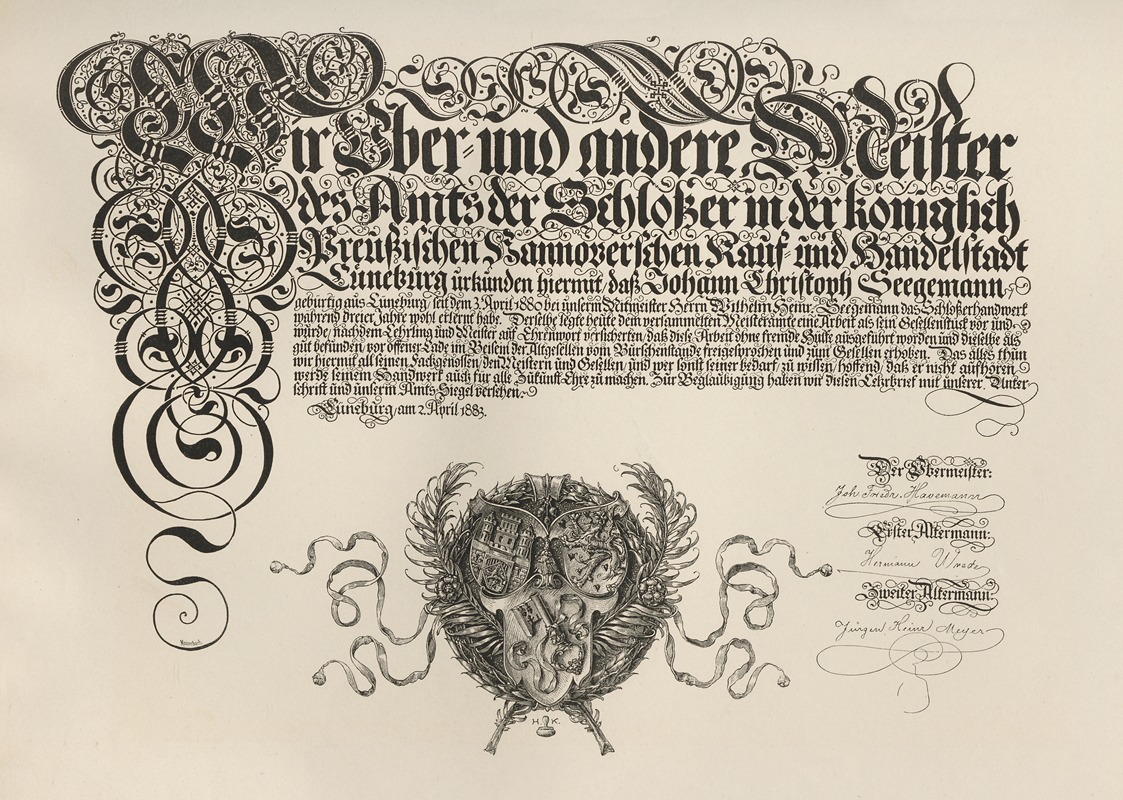 Wir Ober- und andere Meister
des Amts der Schloßer in der königlich
Preußischen Hannoverschen Kauf- und Handelstadt
Lüneburg urkunden hiermit, daß Johann Christoph Seegemann,
gebürtig aus Lüneburg, seit dem 3. April 1880 bei unserm Mitmeister Herrn Wilhelm Heinr. Seegemann das Schloßerhandwerk
während dreier Jahre wohl erlernt habe. Derselbe legte heute dem versammelten Meisteramte eine Arbeit als sein Gesellenstück vor und
würde, nachdem Lehrling und Meister auf Ehrenwort versicherten, daß diese Arbeit ohne fremde Hülfe ausgeführt worden und dieselbe als
gut befunden, vor offener Lade im Beisein der Altgesellen vom Bürschenstande freigesprochen und zum Gesellen erhoben. Das alles thun
wir hiermit all seinen Fachgenossen, den Meistern und Gesellen, und wer sonst seiner bedarf, zu wissen, hoffend, daß er nicht aufhören
werde seinem Handwerk auch für alle Zukunft Ehre zu machen. Zur Beglaubigung haben wir diesen Lehrbrief mit unserer Unter-
schrift und unserm Amts-Siegel versehen.
Lüneburg, am 2. April 1883.
Der Obermeister:
Joh. Friedr. Havemann
Erster Altermann:
Hermann Wrede
Zweiter Altermann:
Jürgen Heinr Meyer
H. K.